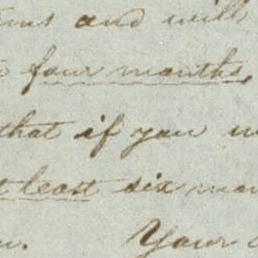 and will
four months,
that if you
least six
Your